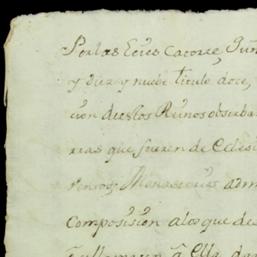 Por las Leies Catorce, Quin
y diez y nueve titulo doce,
cion destos Reinos observa
rias que fueren de Eclesi
Monasterios admi
Composision a los que de
â Ella